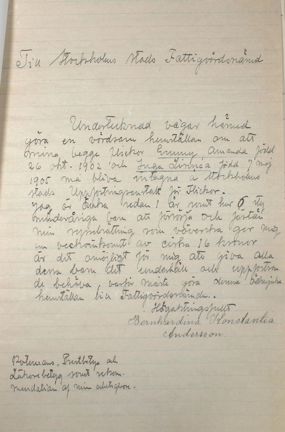 Till Stockholms Stads Fattigvårdsnämd
Undertecknad vågar härmed
göra en vördsam hemställan om att
mina begge flickor Emmy Amanda född
26 okt. 1902 och Inga Linnea född 7 maj
1905 må bliva intagna å Stockholms
stads Uppfostringsanstalt för flickor.
Jag är änka sedan 1 år samt har 6 st
minderåriga barn att försörja och
min sysselsättning som ger mig
en veckoinkomst av cirka 16 kronor
är det omöjligt för mig att giva alla
dessa barn det underhåll och uppfostran
de behöva, varför måste göra denna
hemställan till Fattigvårdsnämden.
Högaktningsfullt
Bernhardina Konstantia
Andersson
Prestbetyg och
Läkarebetyg samt rekom-
mendation af min